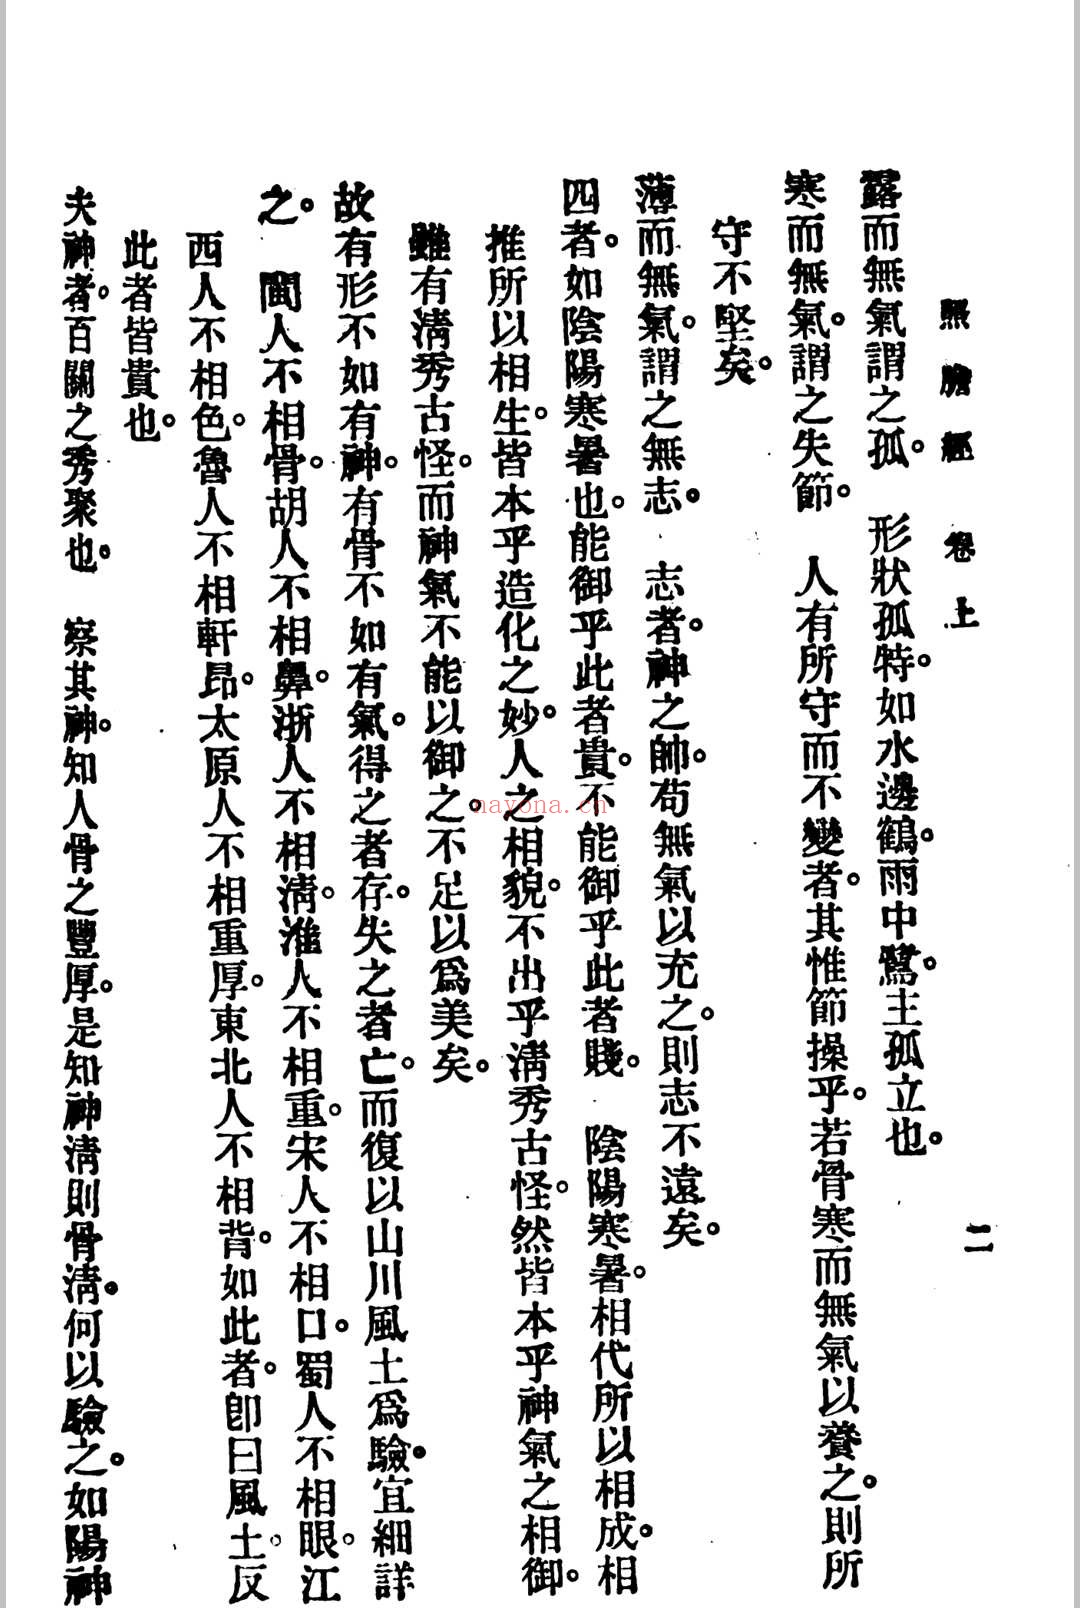 照膽經 卷上 二
露而無氣謂之孤。 形狀孤特。如水邊鶴。雨中鷺。主孤立也。
寒而無氣。謂之失節。 人有所守而不變者。其惟節操乎。若骨寒而無氣以養之。則所
守不堅矣。
薄而無氣。謂之無志。 志者。神之帥。苟無氣以充之。則志不遠矣。
四者。如陰陽寒暑也。能御乎此者貴。不能御乎此者賤。 陰陽寒暑。相代所以相成。相
推所以相生。皆本乎造化之妙。人之相貌。不出乎淸秀古怪。然皆本乎神氣之相御。
雖有淸秀古怪。而神氣不能以御之。不足以爲美矣。
故有形不如有神。有骨不如有氣。得之者存。失之者亡。而復以山川風土爲驗。宜細詳
之。 閩人不相骨。胡人不相鼻。浙人不相淸。淮人不相重。宋人不相口。蜀人不相眼。江
西人不相色。魯人不相軒昂。太原人不相重厚。東北人不相背。如此者。卽曰風土。反
此者皆貴也。
夫神者。百關之秀聚也。 察其神。知人骨之豐厚。是知神淸則骨淸。何以驗之。如陽神
nayona.cn